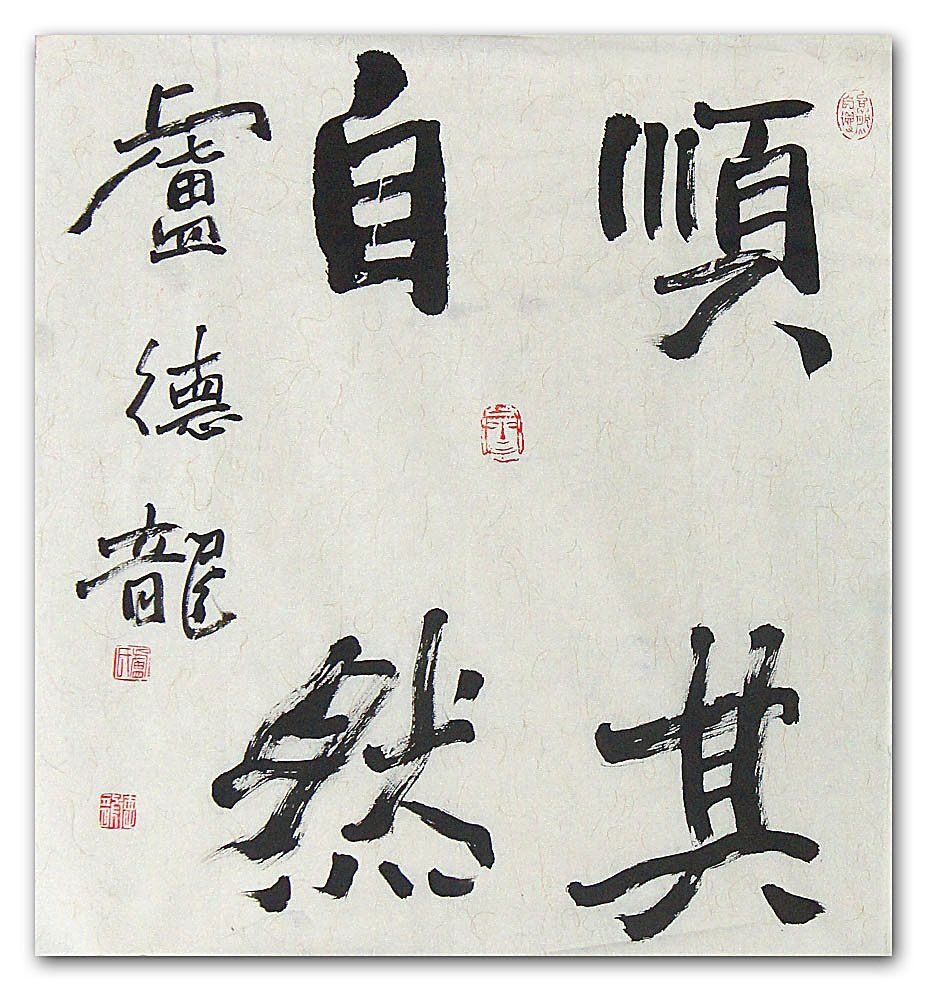 順其
自然
盧德龍